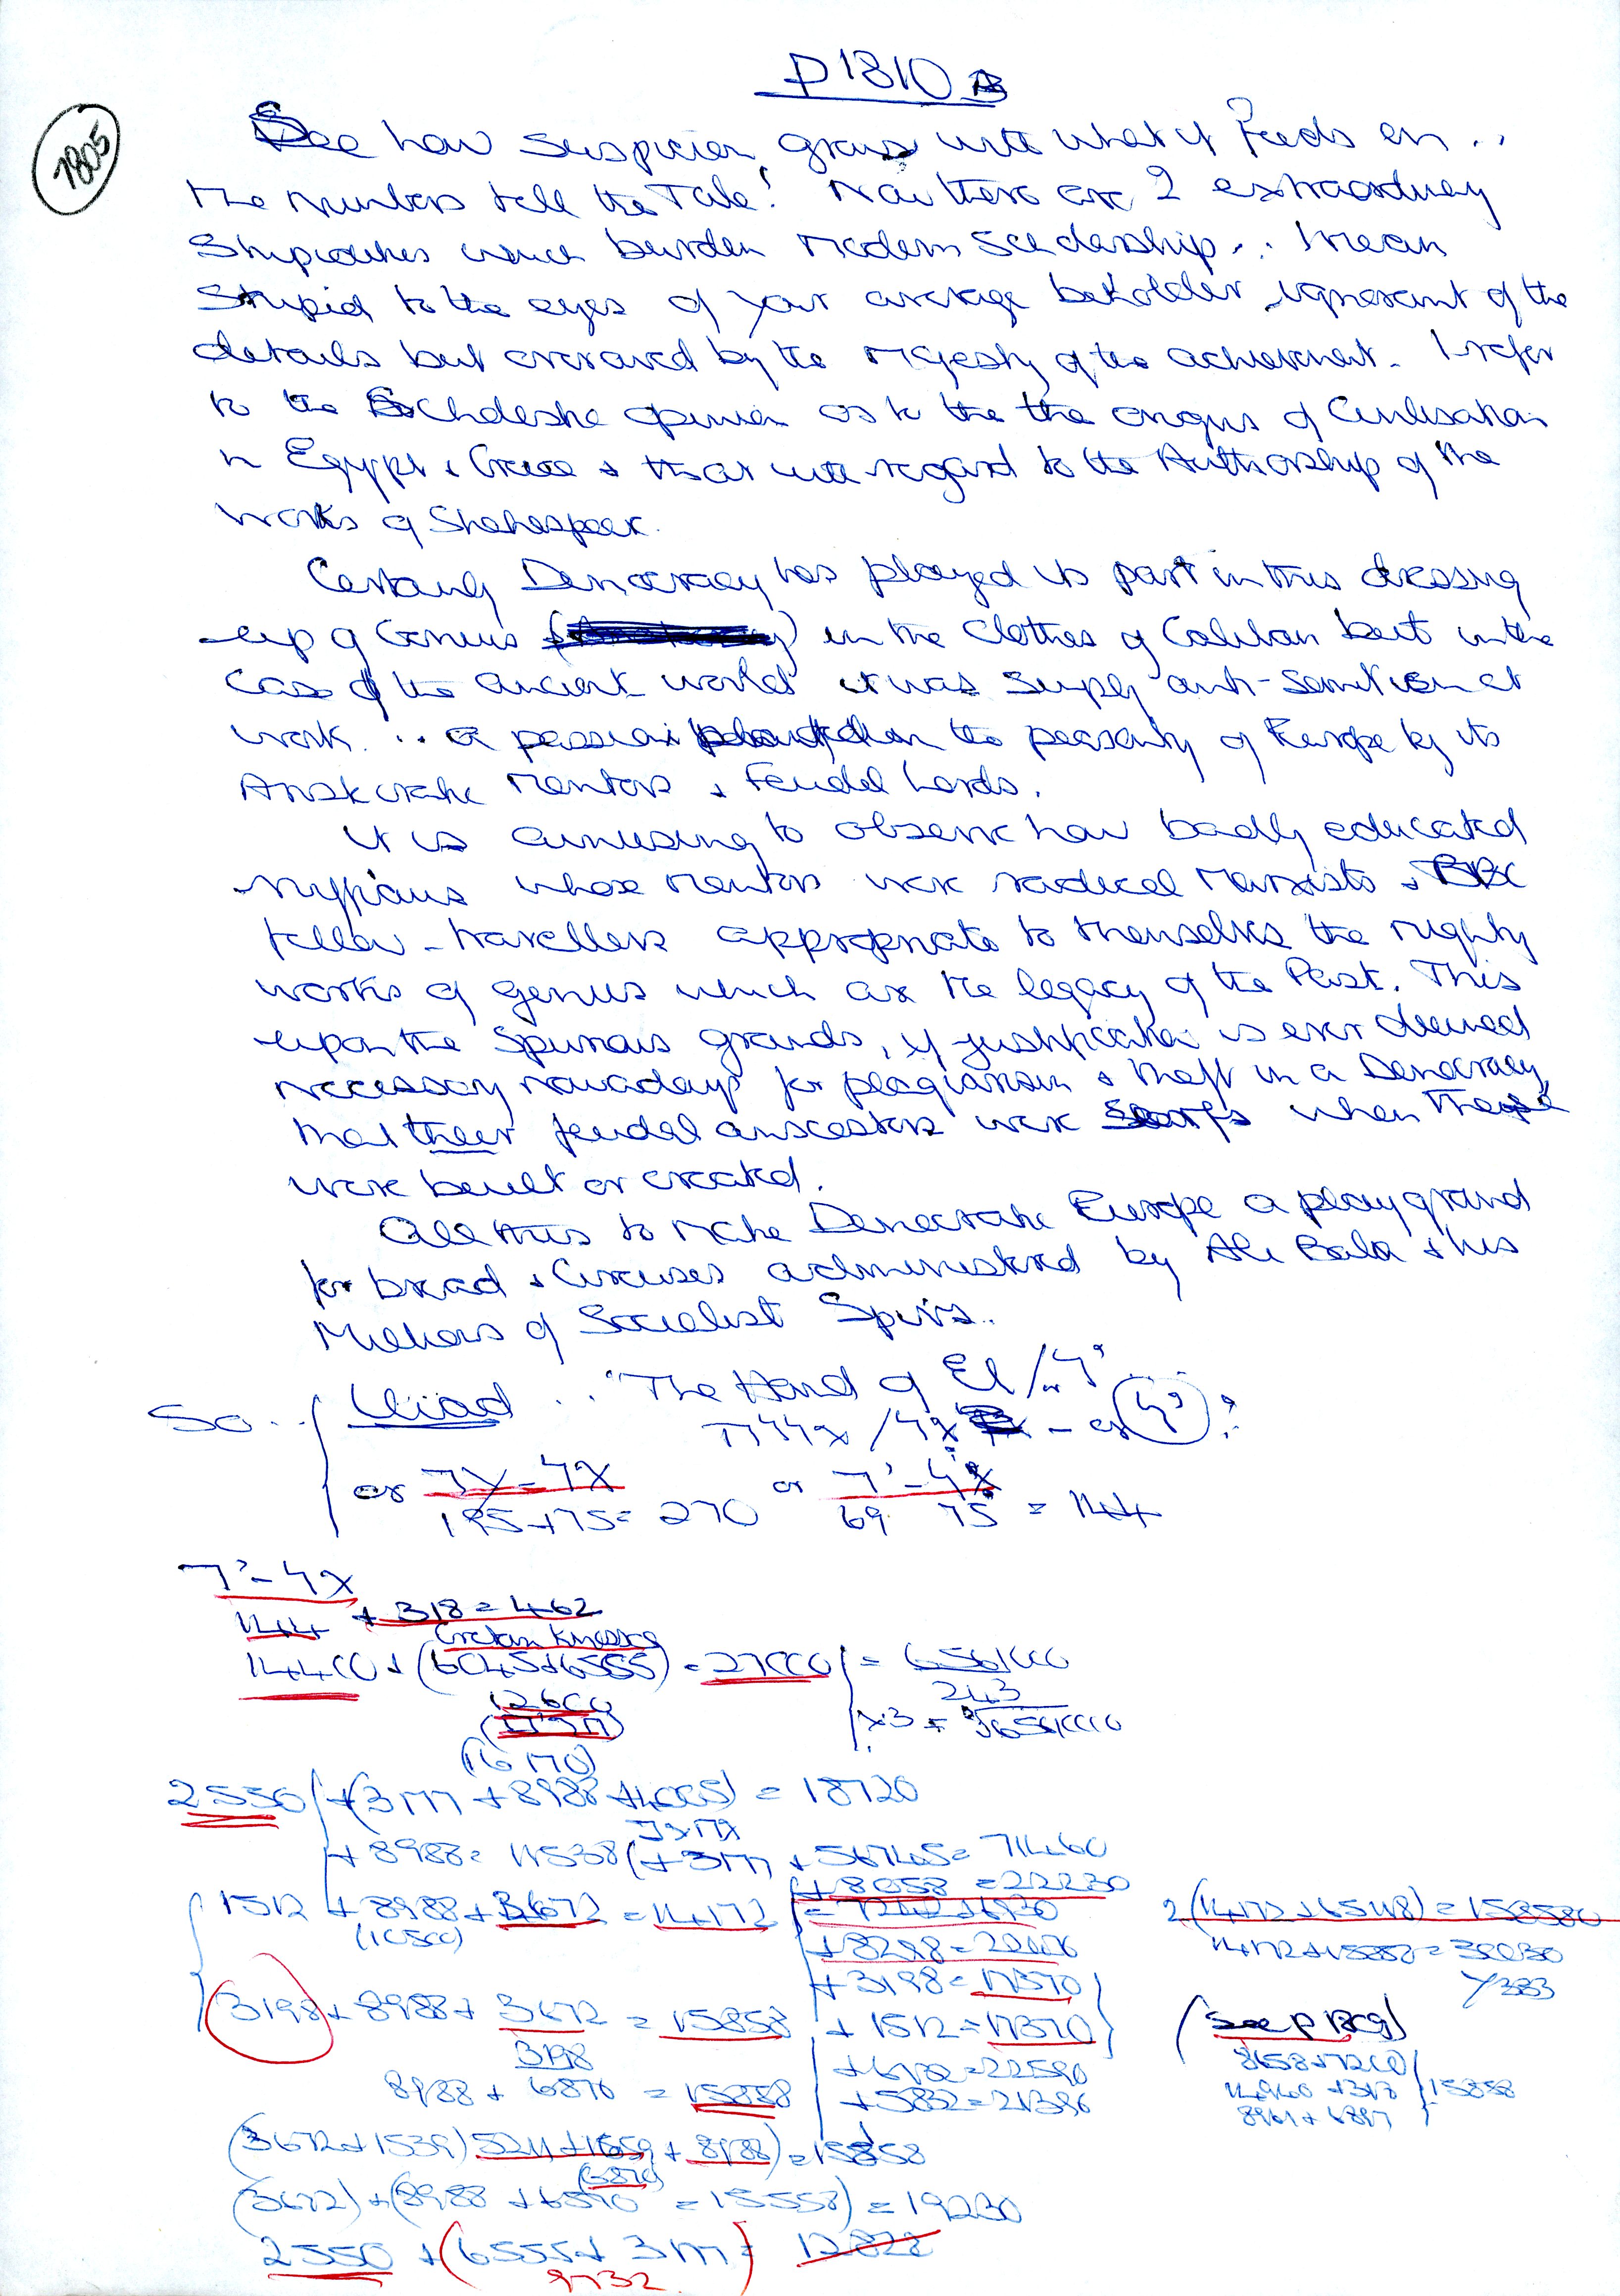 P1810B
1805
See how suspicion grows with what it feeds on..
the numbers tell the Tale! Now there are 2 extraordinary
Stupidities which burden modern Scholarship... I mean
Stupid to the eyes of your average beholder, ignorant of the
details but overawed by the majesty of the achievement. I refer
to the Scholastic opinion as to the the origins of Civilisation
in Egypt & Greece & that with regard to the Authorship of the
Works of Shakespear.
Certainly Democracy has played its part in this dressing
-up of Genius in the Clothes of Caliban but in the
Case of the ancient world it was simply anti-Semitism at
work... a passion in the peasantry of Europe by its
Aristocratic Mentors & Feudal Lords.
It is amusing to observe how badly educated
whose mentors were radical Marxists & BBC
fellow-travellers appropriate to themselves the mighty
works of genius which are the legacy of the Past. This
upon the spurious grounds, if justification is ever deemed
necessary nowadays for plagiarism & theft in a Democracy,
that their feudal anscestors were serfs when these
were built or created.
All this to make Democratic Europe a playground
for bread & Circuses administered by Ali Baba & his
Millions of Socialist Spivs..
So.. Iliad... "The Hand of El
or
195+75= 270 or 69 75 = 144
144 + 318 = 462
Cretan Knossos
14400 + (6045+6555) = 27000 = 6561000
12600
243
(16170)
2550 + (3177 + 8988 + 4005) = 18720
+ 8988 = 11538 (+ 3177 + 56745 = 71460
+ 8058 = 22230
1512 + 8988 + 3672 = 14172 = 7242 + 6930
(10500)
2(14172 + 65118) = 158580
+ 3198 = 17370
14172 + 15858 = 30030
3198 + 8988 + 3672 = 15858 + 1512 = 17370
(see p 1809)
3198
8988 + 6870 = 15858
8658+7200
15858
8961 + 6897
(3672+1539) 5211 + 1659 + 8988) = 15858
(6870)
(3672) + (8988 + 6570 = 15558) = 19230
2550 + (6555 + 3177 = 12822
9732